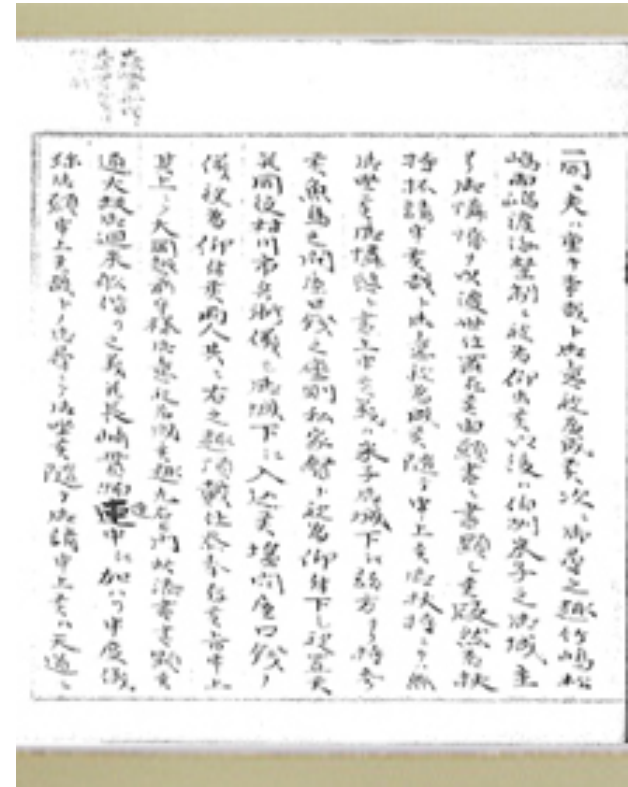 一同ニ夫ハ重キ事哉ト御意被為成候次ニ御尋之趣竹嶋松
嶋両嶋渡海禁制ニ被為仰出候以後ハ伯州米子之御城主
ヨリ御憐愍ヲ以渡世仕罷在候由願書ニ書顕シ候段然者扶
持抔請申候哉ト御意被為成候随テ申上候御扶持ニテハ無
御座候御憐愍ト書上申候義ハ米子御城下ニ諸方ヨリ持参
候魚鳥之問屋口銭之座則私家督ト被為仰付下シ被置候
并同役村川市兵衛儀ハ御城下ニ入込候塩問屋口銭ノ
儀被為仰付候両人共ニ右之趣頂戴仕忝奉存候旨申上
其上ニテ大岡越前守様御意被為成候趣九右衛門書顕候
通大坂御廻米船借リ之義并長崎貫物連中ニ加ハリ申度儀
御願申上候哉ト御尋ニテ御座候随テ御請申上候ハ天道ニ